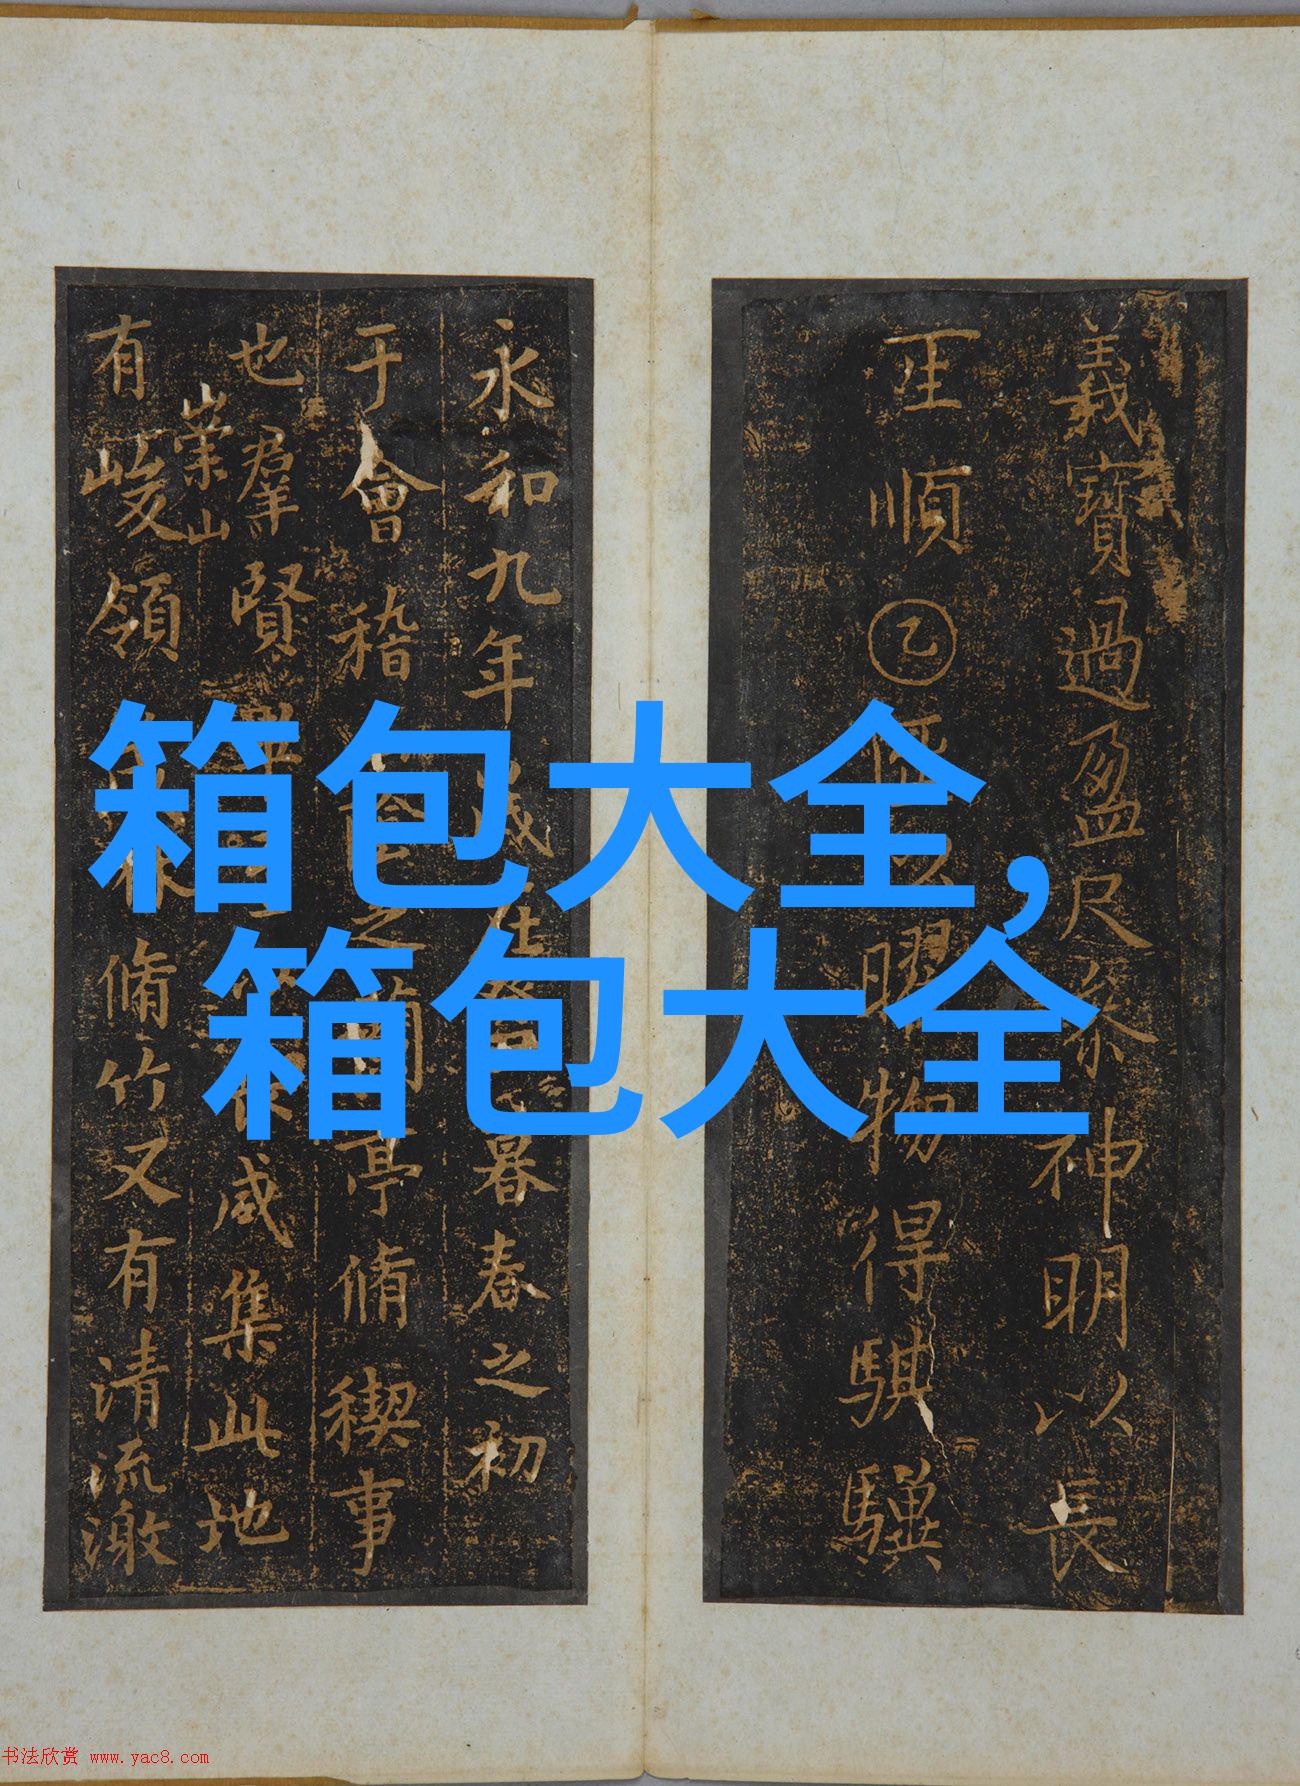 箱包大全,
箱包大全
義寶過盈尺神明以長
順乙曜物得騏驥
永和九年歲在暮春之初
于會稽之蘭亭脩稧事
也羣賢咸集此地
崇山
有峻領脩竹又有清流激
书法欣赏 www.yac8.com